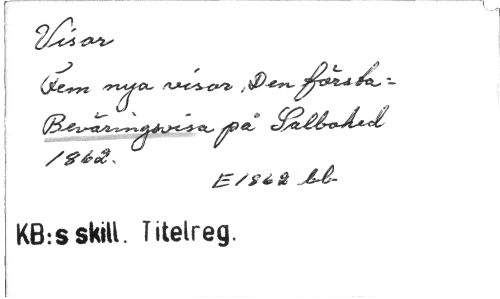 Visor
Fem nya visor, Den första=
Beväringsvisa på Salbohed
1862.
E1862 bb
KB:s skill. Titelreg.